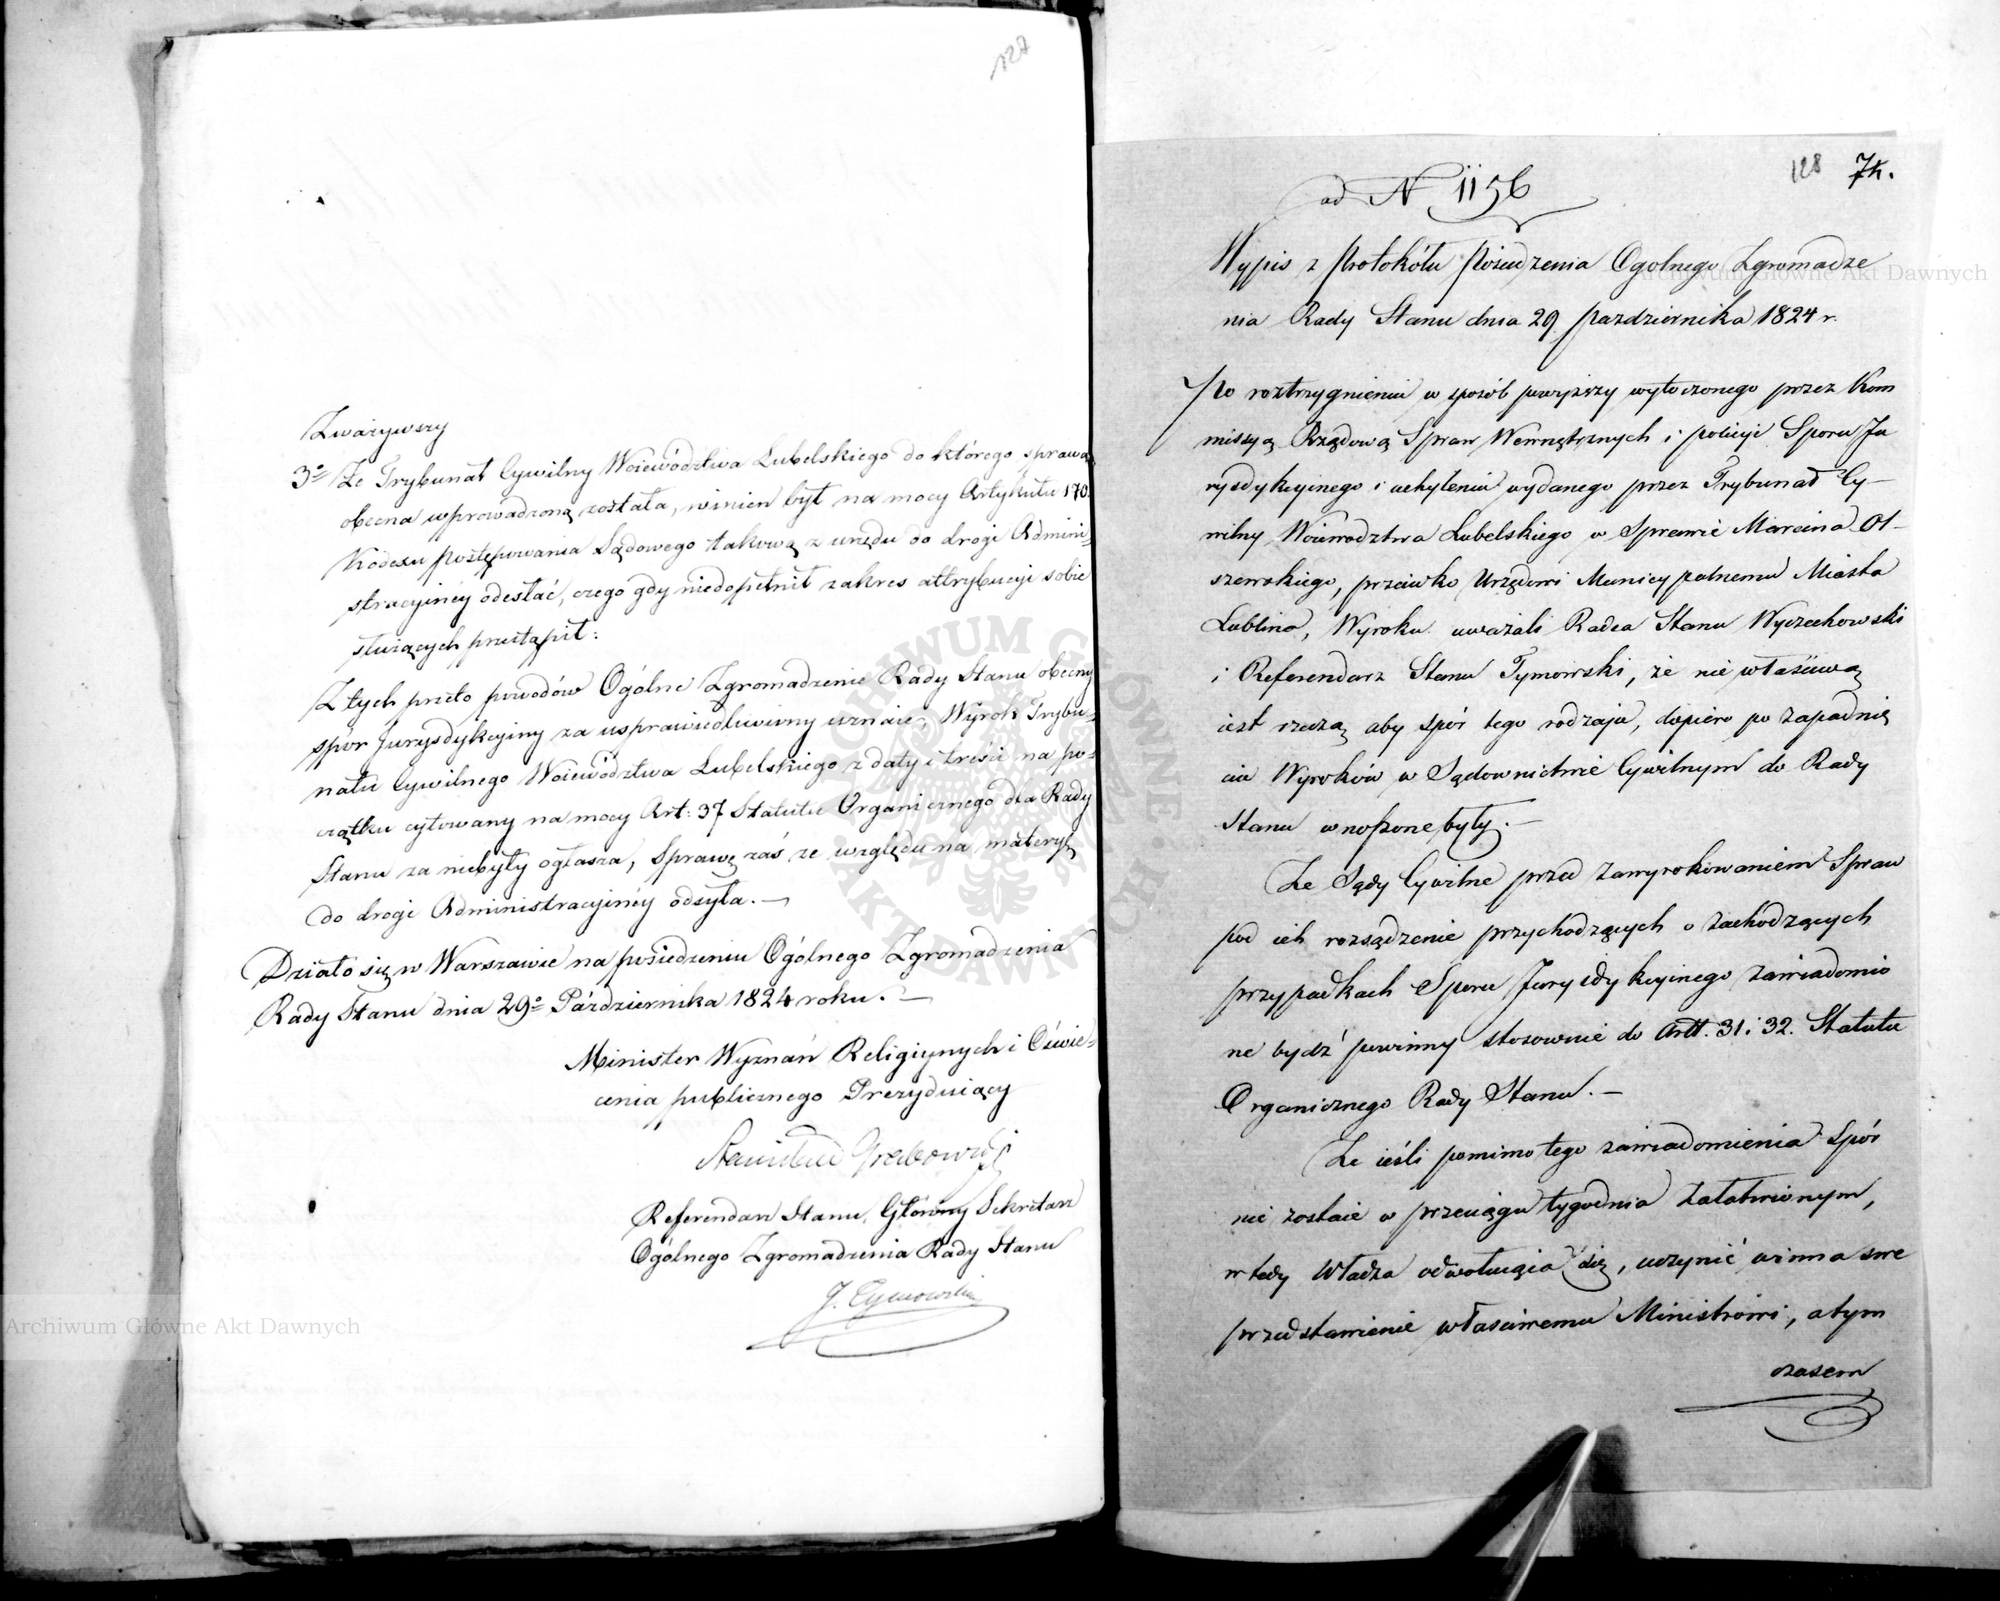 127
Zważywszy
3o Że Trybunał Cywilny Woiewództwa Lubelskiego do którego sprawa
obecna wprowadzoną została, winien był na mocy Artykułu 170.
Kodexu postępowania Sądowego takową z urzędu do drogi Admini-
stracyinéy odesłać, czego gdy niedopełnił zakres attrybucyi sobie
służących przestąpił:
Z tych przeto powodów Ogólne Zgromadzenie Rady Stanu obecny
spór Jurysdykcyiny za usprawiedliwiony uznaie, Wyrok Trybu-
nału Cywilnego Woiewództwa Lubelskiego z daty i treści na po-
czątku cytowany na mocy Art: 37 Statutu Organicznego dla Rady
Stanu za niebyły ogłasza, Sprawę zaś ze względu na materyę
do drogi Administracyinéy odsyła. —
Działo się w Warszawie na posiedzeniu Ogólnego Zgromadzenia
Rady Stanu dnia 29o Października 1824 roku. —
Minister Wyznań Religiynych i Oświe-
cenia publicznego Prezyduiący
Stanisław Grabowski
Referendarz Stanu, Główny Sekretarz
Ogólnego Zgromadzenia Rady Stanu
J. Tymowski
128 74.
ad N 1156
Wypis z Protokółu Posiedzenia Ogolnego Zgromadze
nia Rady Stanu dnia 29 Pazdziernika 1824 r.
Po roztrzygnieniu w sposób powyższy wytoczonego przez Kom
missyą Rządową Spraw Wewnętrznych i policyi Sporu Ju
rysdykcyinego i uchyleniu wydanego przez Trybunał Cy-
wilny Woiewodztwa Lubelskiego w Sprawie Marcina Ol-
szewskiego, przeciwko Urzędowi Municypalnemu Miasta
Lublina, Wyroku uważali Radca Stanu Wyczechowski
i Referendarz Stanu Tymowski, że nie właściwą
iest rzeczą aby spór tego rodzaju, dopiero po zapadnię
ciu Wyroków w Sądownictwie Cywilnym do Rady
Stanu wnoszone były. —
Że Sądy Cywilne przed zawyrokowaniem Spraw
pod ich rozsądzenie przychodzących o zachodzących
przypadkach Sporu Jurysdykcyinego zawiadomio
ne bydź powinny stosownie do Artt. 31 i 32. Statutu
Organicznego Rady Stanu. —
Że ieśli pomimo tego zawiadomienia Spór
nie zostaie w przeciągu tygodnia załatwionym,
wtedy Władza odwołuiąca się, uczynić winna swe
przedstawienie właściwemu Ministrowi, a tym
czasem
Archiwum Główne Akt Dawnych
Archiwum Główne Akt Dawnych
ARCHIWUM GŁÓWNE · AKT DAWNYCH ·